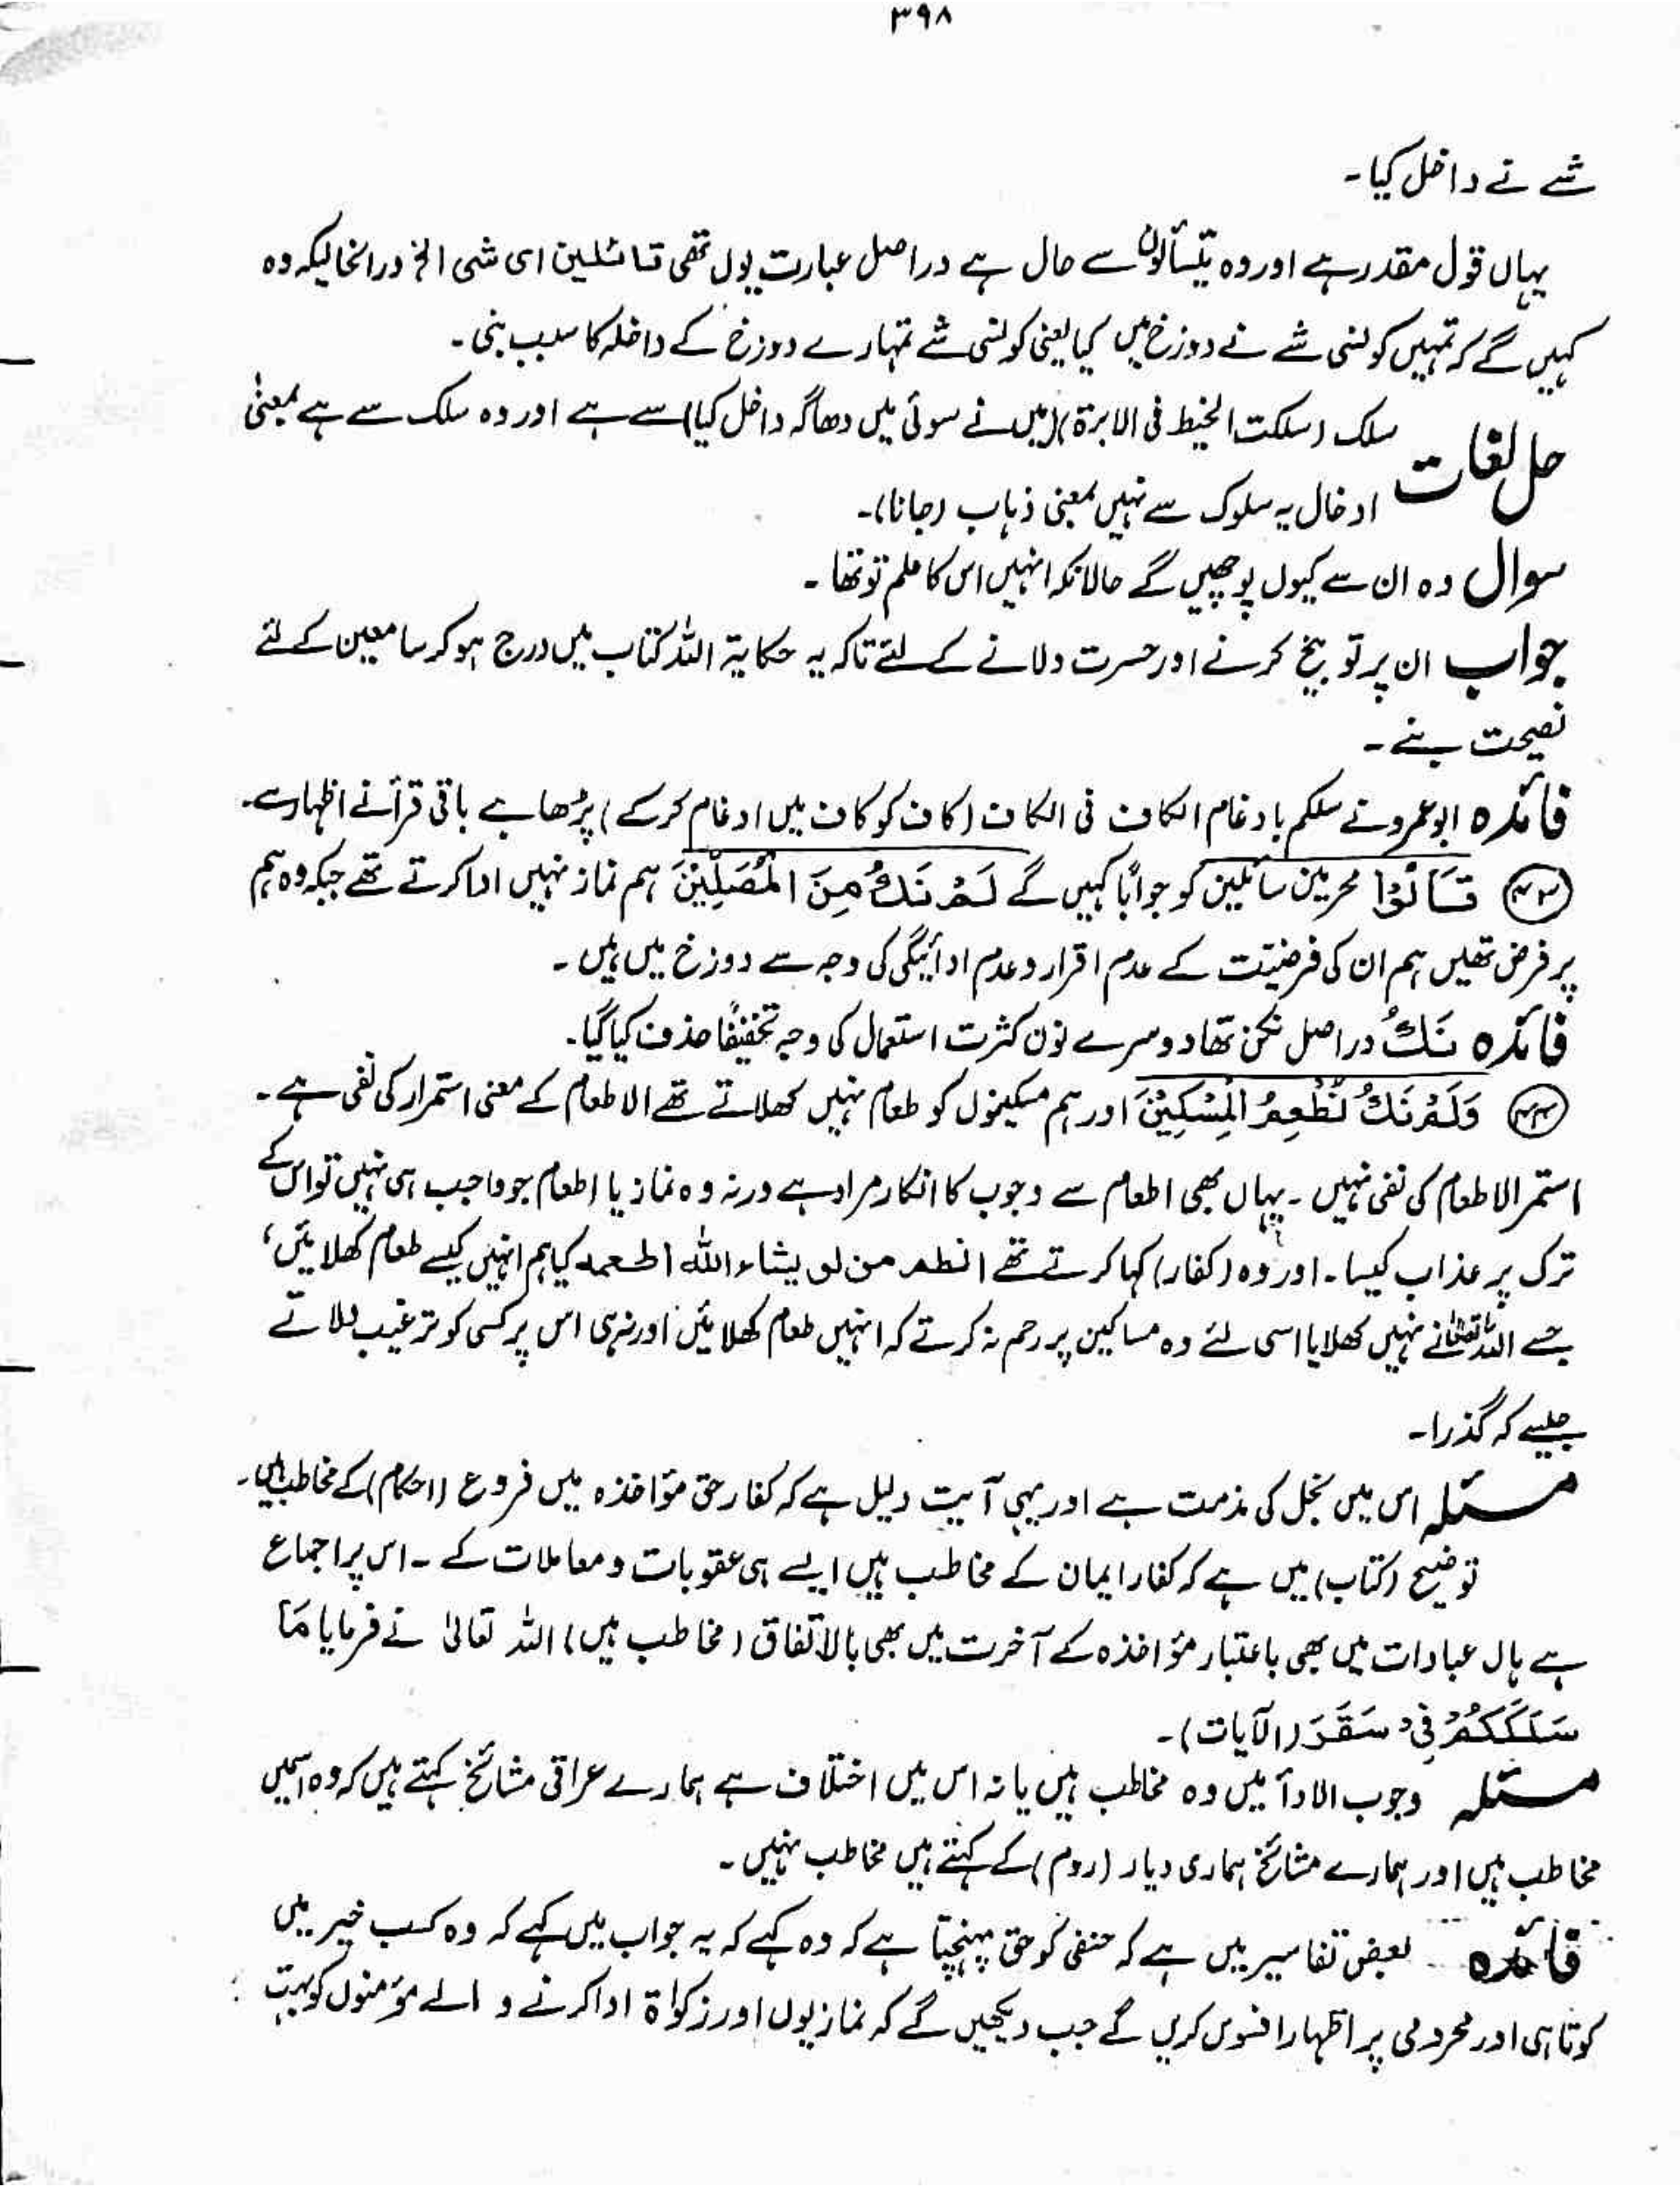 ۳۹۸
شے نے داخل کیا۔
یہاں قول مقدر ہے اور وہ یتسألون سے حال ہے دراصل عبارت یوں تھی قائلین ای شی الخ درانحالیکہ وہ
کہیں گے کہ تمہیں کونسی شے نے دوزخ میں کیا یعنی کونسی شے تمہارے دوزخ کے داخلہ کا سبب بنی۔
حل لغات سلک (سلکت الخیط فی الابرۃ)(میں نے سوئی میں دھاگہ داخل کیا) سے ہے اور وہ سلک سے ہے بمعنیٰ
ادخال یہ سلوک سے نہیں بمعنی ذہاب (جانا)۔
سوال وہ ان سے کیوں پوچھیں گے حالانکہ انہیں اس کا علم تو تھا۔
جواب ان پر توبیخ کرنے اور حسرت دلانے کے لئے تاکہ یہ حکایۃ اللہ کتاب میں درج ہو کر سامعین کے لئے
نصیحت بنے۔
فائدہ ابوعمرو نے سلکم بادغام الکاف فی الکاف (کاف کو کاف میں ادغام کر کے) پڑھا ہے باقی قرأ نے اظہار سے۔
(۴۳) قَالُوْا مجرمین سائلین کو جواباً کہیں گے لَمْ نَكُ مِنَ الْمُصَلِّيْنَ ہم نماز نہیں ادا کرتے تھے جبکہ وہ ہم
پر فرض تھیں ہم ان کی فرضیت کے عدم اقرار و عدم ادائیگی کی وجہ سے دوزخ میں ہیں۔
فائدہ نَكُ دراصل نکن تھا دوسرے نون کثرت استعمال کی وجہ تخفیفًا حذف کیا گیا۔
(۴۴) وَلَمْ نَكُ نُطْعِمُ الْمِسْكِيْنَ اور ہم مسکینوں کو طعام نہیں کھلاتے تھے الاطعام کے معنی استمرار کی نفی ہے۔
استمر الاطعام کی نفی نہیں۔ یہاں بھی اطعام سے وجوب کا انکار مراد ہے ورنہ وہ نماز یا اطعام جو واجب ہی نہیں تو اس کے
ترک پر عذاب کیسا۔ اور وہ (کفار) کہا کرتے تھے انطعم من لو یشاء اللہ اطعمہ کیا ہم انہیں کیسے طعام کھلائیں،
جسے اللہ تعالیٰ نے نہیں کھلایا اسی لئے وہ مساکین پر رحم نہ کرتے کہ انہیں طعام کھلائیں اور نہ ہی اس پر کسی کو ترغیب دلاتے
جیسے کہ گذرا۔
مسئلہ اس میں بخل کی مذمت ہے اور یہی آیت دلیل ہے کہ کفار حق مؤاخذہ میں فروع (احکام) کے مخاطب ہیں۔
توضیح (کتاب) میں ہے کہ کفار ایمان کے مخاطب ہیں ایسے ہی عقوبات و معاملات کے۔ اس پر اجماع
ہے ہاں عبادات میں بھی باعتبار مؤاخذہ کے آخرت میں بھی بالاتفاق (مخاطب ہیں) اللہ تعالیٰ نے فرمایا مَا
سَلَكَكُمْ فِيْ سَقَرَ (الآیات)۔
مسئلہ وجوب الادأ میں وہ مخاطب ہیں یا نہ اس میں اختلاف ہے ہمارے عراقی مشائخ کہتے ہیں کہ وہ اسمیں
مخاطب ہیں اور ہمارے مشائخ ہماری دیار (روم) کے کہتے ہیں مخاطب نہیں۔
فائدہ بعض تفاسیر میں ہے کہ حنفی کو حق پہنچتا ہے کہ وہ کہے کہ یہ جواب میں کہے کہ وہ کسب خیر میں
کوتاہی اور محرومی پر اظہار افسوس کریں گے جب دیکھیں گے کہ نمازیوں اور زکوٰۃ ادا کرنے والے مؤمنوں کو بہت